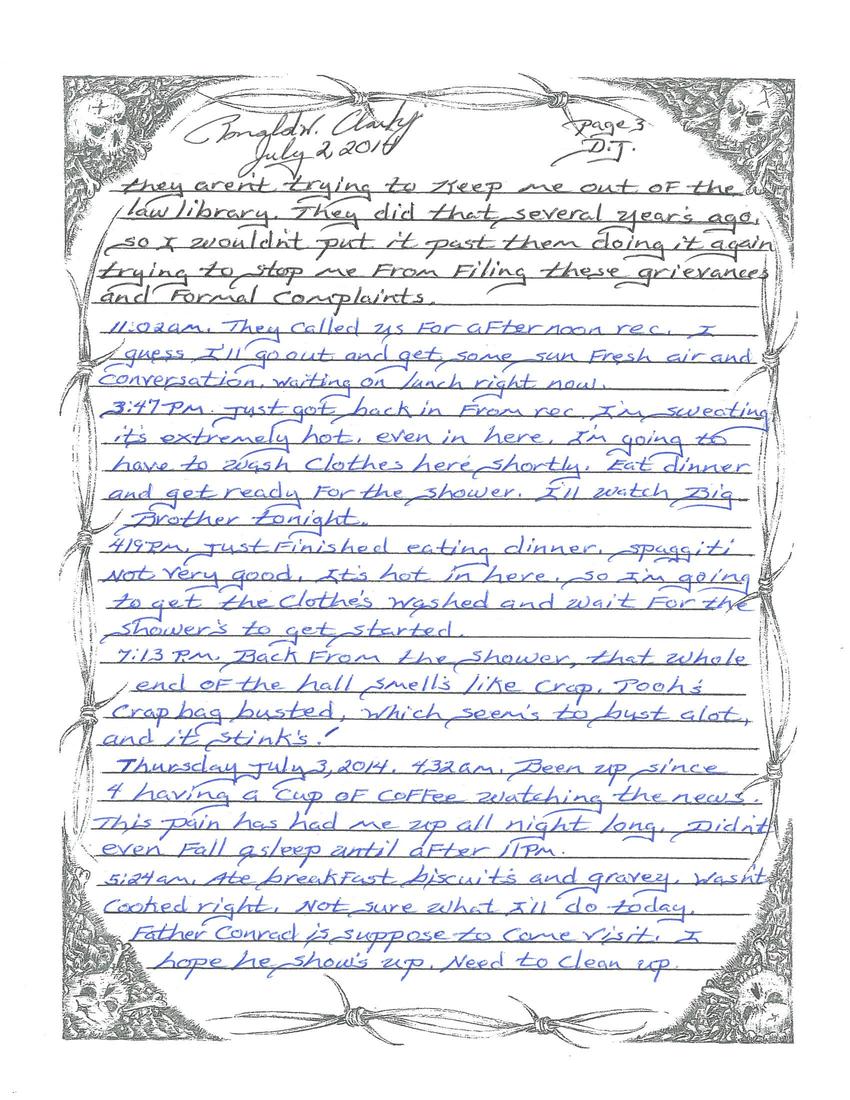 Ronald W. Clark Jr page 3
July 2, 2014 D.J.
they aren't trying to Keep me out of the
law library. They did that several year's ago,
so I wouldn't put it past them doing it again
trying to stop me From Filing these grievances
and Formal Complaints.
11:02am. They called us For aFter noon rec. I
guess I'll go out and get some sun Fresh air and
conversation. waiting on lunch right now.
3:47 PM. Just got back in From rec. I'm sweating
it's extremely hot, even in here. I'm going to
have to wash Clothes here shortly. Eat dinner
and get ready For the shower. I'll watch Big
Brother tonight.
419PM. Just Finished eating dinner, spaggiti
Not very good. It's hot in here, so I'm going
to get the Clothe's washed and wait For the
shower's to get started.
7:13 P.M. Back From the shower, that whole
end oF the hall smell's like Crap. Pooh's
Crap bag busted, which seem's to bust alot,
and it stink's!
Thursday July 3, 2014. 432am. Been up since
4 having a Cup oF CoFFee watching the news.
This pain has had me up all night long. Didn't
even Fall asleep until aFter 11PM.
5:24am. Ate breakFast biscuit's and gravey. Wasn't
Cooked right. Not sure what I'll do today.
Father Conrad is suppose to Come visit. I
hope he show's up. Need to Clean up.